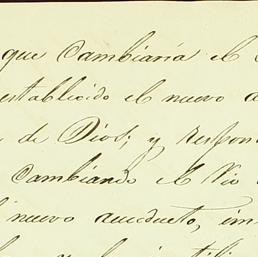 que cambiaria el
establecido el nuevo a
de Dios; y respon
cambiando el Rio
nuevo acueducto, im